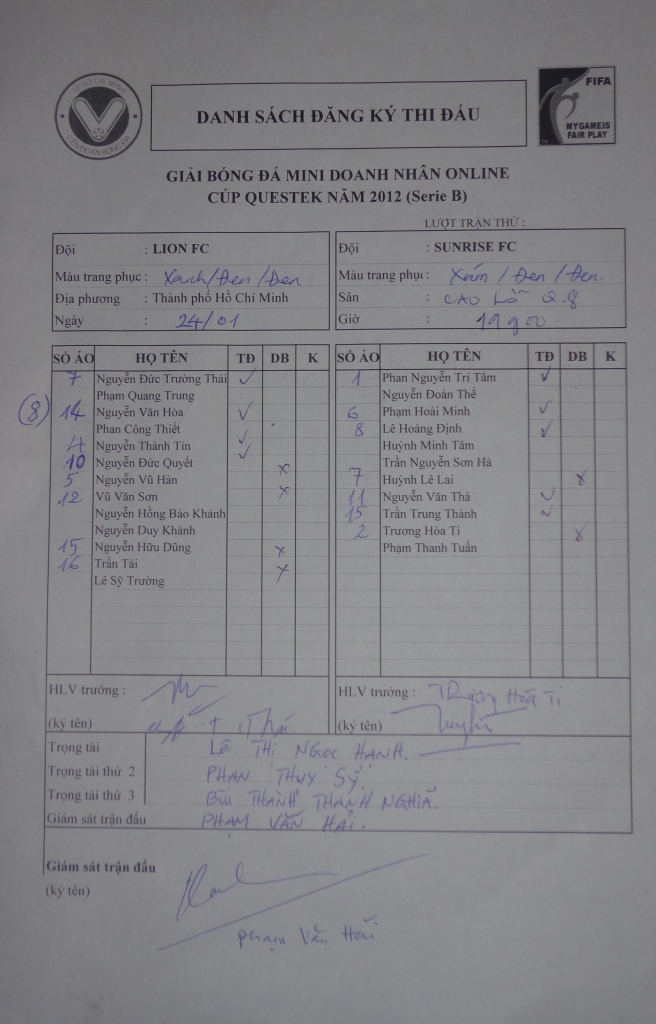 TP HỒ CHÍ MINH
LIÊN ĐOÀN BÓNG ĐÁ
DANH SÁCH ĐĂNG KÝ THI ĐẤU
FIFA
MY GAME IS
FAIR PLAY
GIẢI BÓNG ĐÁ MINI DOANH NHÂN ONLINE
CÚP QUESTEK NĂM 2012 (Serie B)
LƯỢT TRẬN THỨ :
Đội : LION FC
Màu trang phục : Xanh/Đen/Đen
Địa phương : Thành phố Hồ Chí Minh
Ngày : 24/01
Đội : SUNRISE FC
Màu trang phục : Xám/Đen/Đen.
Sân : CAO LỖ Q.8
Giờ : 19g00
SỐ ÁO HỌ TÊN TĐ DB K
7 Nguyễn Đức Trường Thái ✓
Phạm Quang Trung
(8) 14 Nguyễn Văn Hòa ✓
Phan Công Thiết
4 Nguyễn Thành Tín ✓
10 Nguyễn Đức Quyết ✓
5 Nguyễn Vũ Hàn x
12 Vũ Văn Sơn x
Nguyễn Hồng Bảo Khánh
Nguyễn Duy Khánh
15 Nguyễn Hữu Dũng x
16 Trần Tài x
Lê Sỹ Trường
SỐ ÁO HỌ TÊN TĐ DB K
1 Phan Nguyễn Trí Tâm ✓
Nguyễn Đoàn Thế
6 Phạm Hoài Minh ✓
8 Lê Hoàng Định ✓
Huỳnh Minh Tâm
Trần Nguyễn Sơn Hà
7 Huỳnh Lê Lai x
11 Nguyễn Văn Thả ✓
15 Trần Trung Thành ✓
2 Trương Hòa Ti x
Phạm Thanh Tuấn
HLV trưởng :
(ký tên) Thái
HLV trưởng : Trương Hoà Ti
(ký tên)
Trọng tài LÊ THỊ NGỌC HẠNH.
Trọng tài thứ 2 PHAN THỤY SỸ.
Trọng tài thứ 3 BÙI THÀNH THANH NGHĨA.
Giám sát trận đấu PHẠM VĂN HẢI.
Giám sát trận đấu
(ký tên)
Phạm Văn Hải